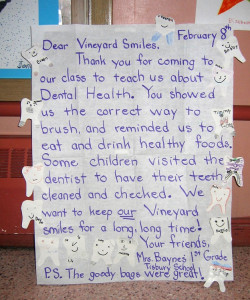 February 8th
Dear Vineyard Smiles,
Thank you for coming to
our class to teach us about
Dental Health. You showed
us the correct way to
brush, and reminded us to
eat and drink healthy foods.
Some children visited the
dentist to have their teeth
cleaned and checked. We
want to keep our Vineyard
smiles for a long, long time!
Your friends,
Mrs. Baynes' 1st Grade
Tisbury School
P.S. The goody bags were great!